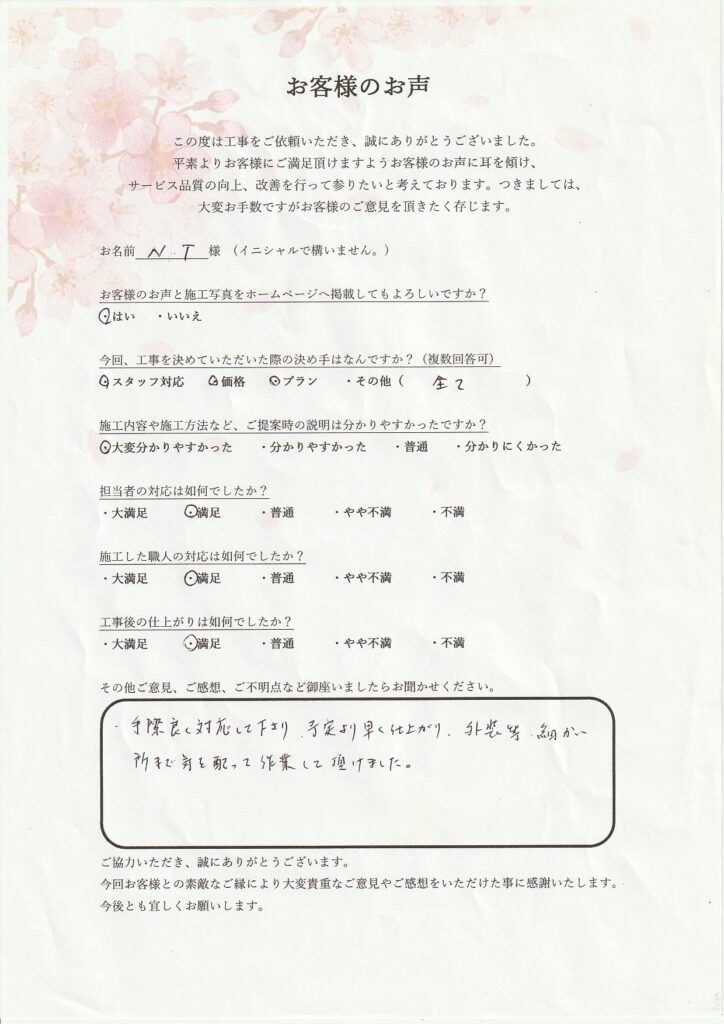 お客様のお声
この度は工事をご依頼いただき、誠にありがとうございました。
平素よりお客様にご満足頂けますようお客様のお声に耳を傾け、
サービス品質の向上、改善を行って参りたいと考えております。つきましては、
大変お手数ですがお客様のご意見を頂きたく存じます。
お名前 N.T 様 （イニシャルで構いません。）
お客様のお声と施工写真をホームページへ掲載してもよろしいですか？
・はい ・いいえ
今回、工事を決めていただいた際の決め手はなんですか？（複数回答可）
・スタッフ対応 ・価格 ・プラン ・その他（ 全て ）
施工内容や施工方法など、ご提案時の説明は分かりやすかったですか？
・大変分かりやすかった ・分かりやすかった ・普通 ・分かりにくかった
担当者の対応は如何でしたか？
・大満足 ・満足 ・普通 ・やや不満 ・不満
施工した職人の対応は如何でしたか？
・大満足 ・満足 ・普通 ・やや不満 ・不満
工事後の仕上がりは如何でしたか？
・大満足 ・満足 ・普通 ・やや不満 ・不満
その他ご意見、ご感想、ご不明点など御座いましたらお聞かせください。
・手際良く対応して下より、予定より早く仕上がり、外装等、細かい
所まで気を配って作業して頂けました。
ご協力いただき、誠にありがとうございます。
今回お客様との素敵なご縁により大変貴重なご意見やご感想をいただけた事に感謝いたします。
今後とも宜しくお願いします。